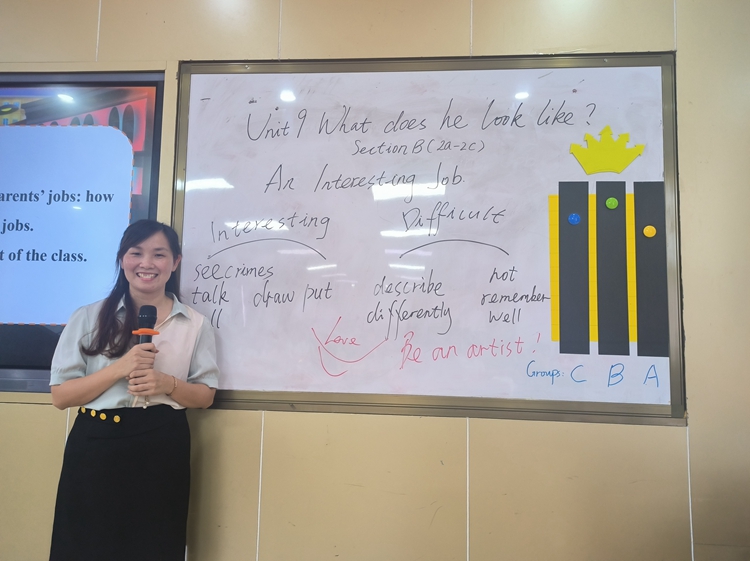 arents' jobs: how
jobs.
t of the class.
Unit 9 What does he look like?
Section B (2a-2c)
An Interesting Job.
Interesting
see crimes
talk draw put
ll
Difficult
describe
differently
not
remember
well
Love
Be an artist!
Groups: C B A